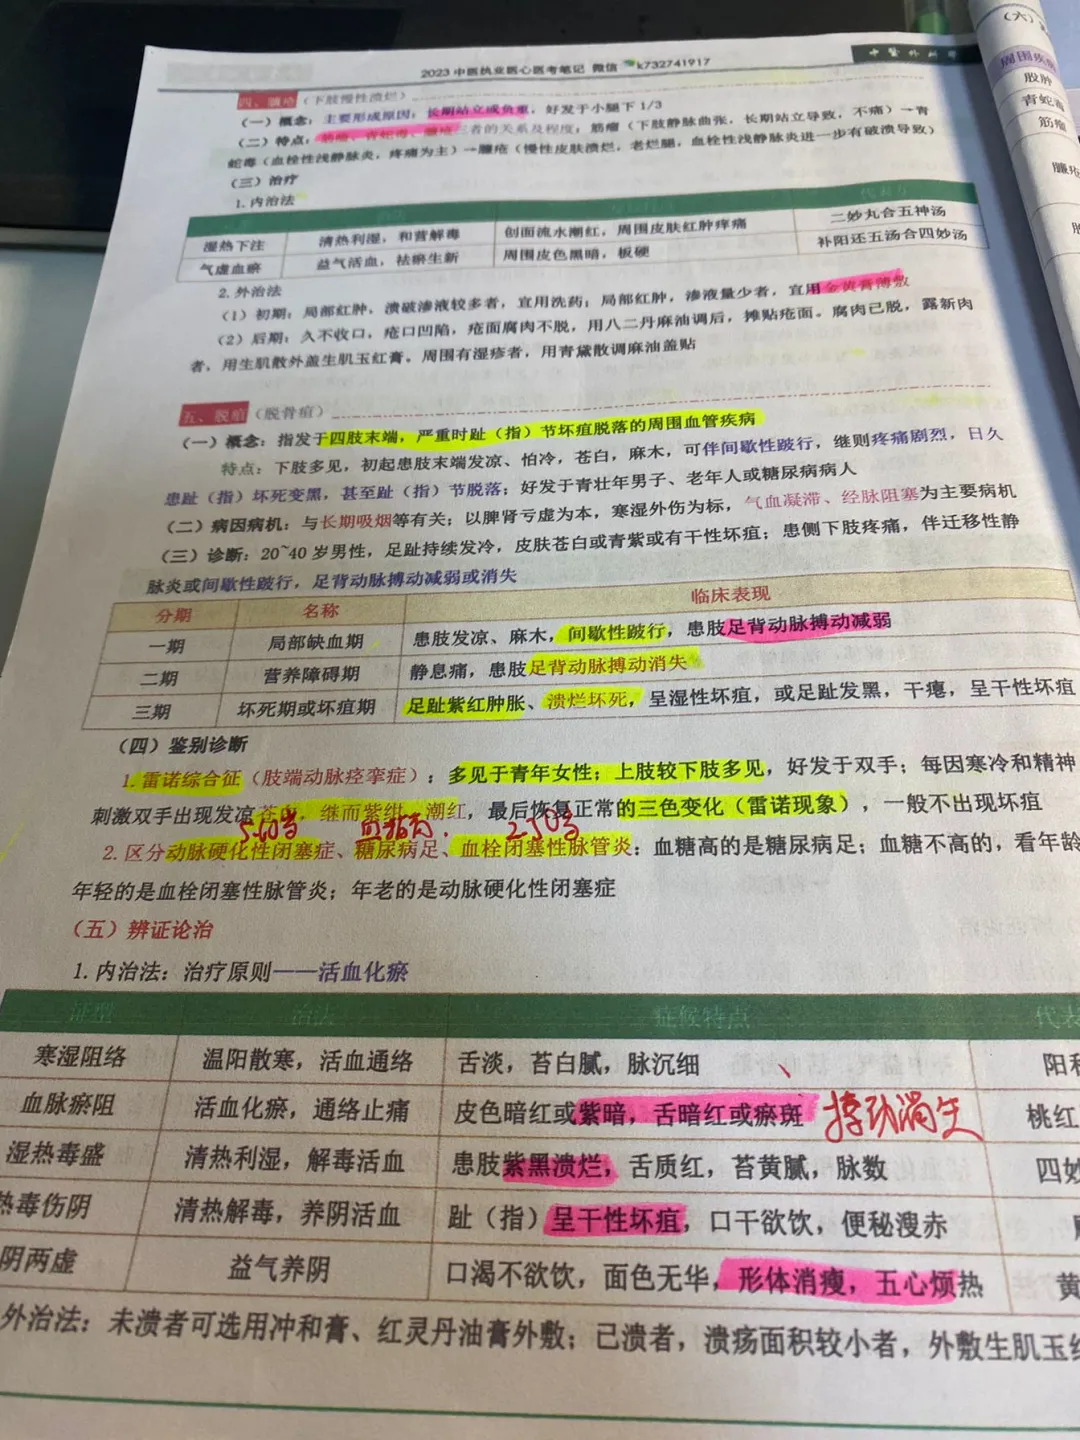 2023 中医执业医心医考笔记 微信 k732741917
中医外科学
四、臁疮（下肢慢性溃烂）
（一）概念：主要形成原因：长期站立或负重，好发于小腿下 1/3
（二）特点：筋瘤、青蛇毒、臁疮三者的关系及程度，筋瘤（下肢静脉曲张，长期站立导致，不痛）→青
蛇毒（血栓性浅静脉炎，疼痛为主）→臁疮（慢性皮肤溃烂，老烂腿，血栓性浅静脉炎进一步有破溃导致）
（三）治疗
1. 内治法
湿热下注 清热利湿，和营解毒 创面流水潮红，周围皮肤红肿痒痛 二妙丸合五神汤
气虚血瘀 益气活血，祛瘀生新 周围皮色黑暗，板硬 补阳还五汤合四妙汤
2. 外治法
（1）初期：局部红肿、溃破渗液较多者，宜用洗药；局部红肿，渗液量少者，宜用金黄膏薄敷
（2）后期：久不收口，疮口凹陷，疮面腐肉不脱，用八二丹麻油调后，摊贴疮面。腐肉已脱，露新肉
者，用生肌散外盖生肌玉红膏。周围有湿疹者，用青黛散调麻油盖贴
五、脱疽（脱骨疽）
（一）概念：指发于四肢末端，严重时趾（指）节坏疽脱落的周围血管疾病
特点：下肢多见，初起患肢末端发凉、怕冷，苍白，麻木，可伴间歇性跛行，继则疼痛剧烈，日久
患趾（指）坏死变黑，甚至趾（指）节脱落；好发于青壮年男子、老年人或糖尿病病人
（二）病因病机：与长期吸烟等有关；以脾肾亏虚为本，寒湿外伤为标，气血凝滞、经脉阻塞为主要病机
（三）诊断：20~40 岁男性，足趾持续发冷，皮肤苍白或青紫或有干性坏疽；患侧下肢疼痛，伴迁移性静
脉炎或间歇性跛行，足背动脉搏动减弱或消失
分期 名称 临床表现
一期 局部缺血期 患肢发凉、麻木，间歇性跛行，患肢足背动脉搏动减弱
二期 营养障碍期 静息痛，患肢足背动脉搏动消失
三期 坏死期或坏疽期 足趾紫红肿胀、溃烂坏死，呈湿性坏疽，或足趾发黑，干瘪，呈干性坏疽
（四）鉴别诊断
1. 雷诺综合征（肢端动脉痉挛症）：多见于青年女性；上肢较下肢多见，好发于双手；每因寒冷和精神
刺激双手出现发凉苍白，继而紫绀、潮红，最后恢复正常的三色变化（雷诺现象），一般不出现坏疽
2. 区分动脉硬化性闭塞症、糖尿病足、血栓闭塞性脉管炎：血糖高的是糖尿病足；血糖不高的，看年龄
年轻的是血栓闭塞性脉管炎；年老的是动脉硬化性闭塞症
（五）辨证论治
1. 内治法：治疗原则——活血化瘀
证型 治法 症候特点 代表
寒湿阻络 温阳散寒，活血通络 舌淡，苔白腻，脉沉细 阳和
血脉瘀阻 活血化瘀，通络止痛 皮色暗红或紫暗，舌暗红或瘀斑 搏动消失 桃红
湿热毒盛 清热利湿，解毒活血 患肢紫黑溃烂，舌质红，苔黄腻，脉数 四妙
热毒伤阴 清热解毒，养阴活血 趾（指）呈干性坏疽，口干欲饮，便秘溲赤
阴两虚 益气养阴 口渴不欲饮，面色无华，形体消瘦，五心烦热 黄
外治法：未溃者可选用冲和膏、红灵丹油膏外敷；已溃者，溃疡面积较小者，外敷生肌玉红
（六）
周围疾病
股肿
青蛇毒
筋瘤
臁疮